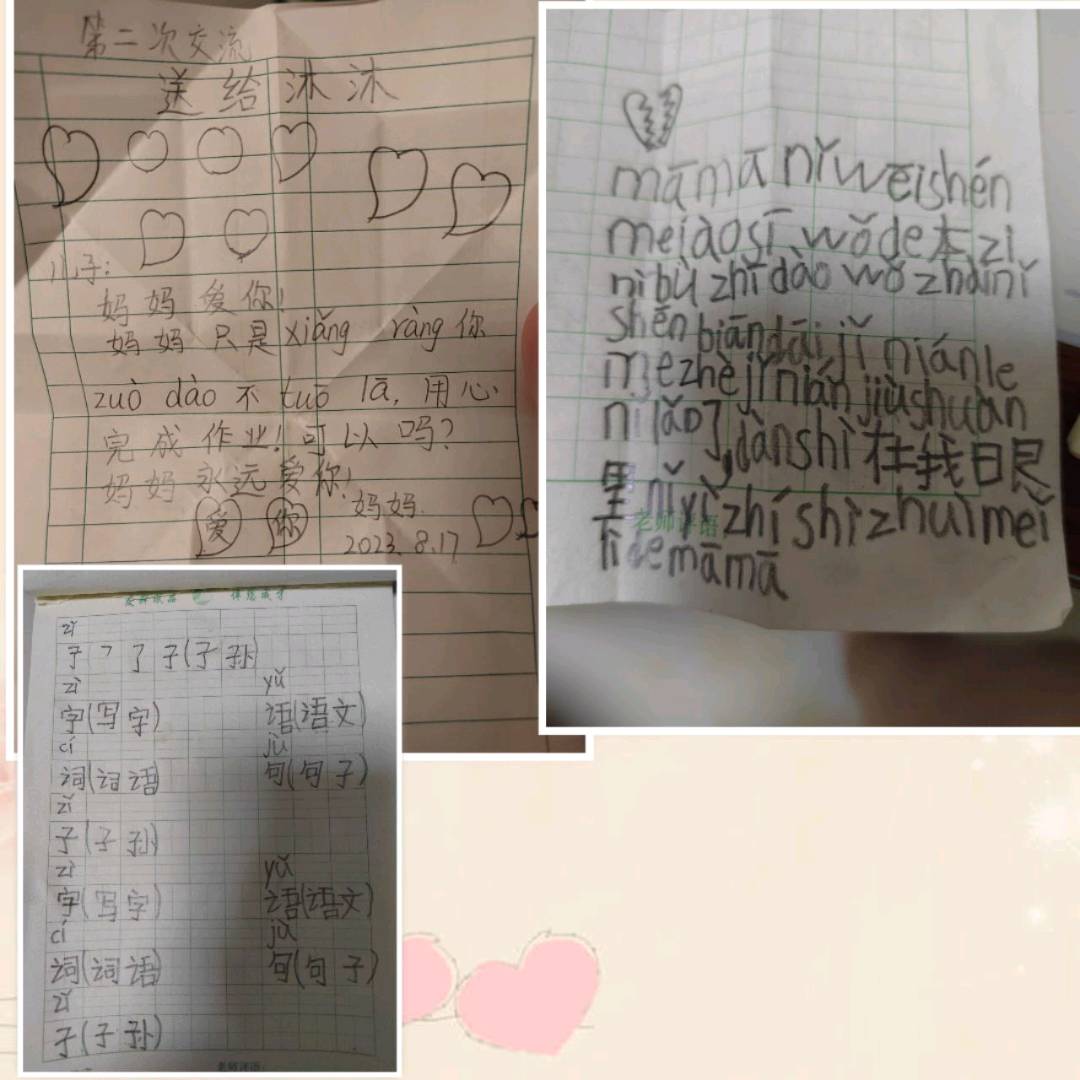 第二次交流
送给沐沐
儿子:
妈妈爱你!
妈妈只是xiǎng ràng你
zuò dào不tuō lā,用心
完成作业!可以吗?
妈妈永远爱你!
爱 你 妈妈
2023.8.17
māmā nǐ wēishén
mejàosī wǒde本zi
nǐ bù zhīdào wǒ zhàinǐ
shēn biāndāi jǐ niánle
mezhèjǐniánjiùshuàn
nǐ lǎo了,dànshì在我眼
里nǐyìzhíshìzhuìměi
lìdemāmā
老师评语
zǐ
子 ㇇ 了 子(子孙)
zì yǔ
字(写字) 语(语文)
cí jù
词(词语) 句(句子)
zǐ
子(子孙)
zì yǔ
字(写字) 语(语文)
cí jù
词(词语) 句(句子)
zǐ
子(子孙)
老师评语